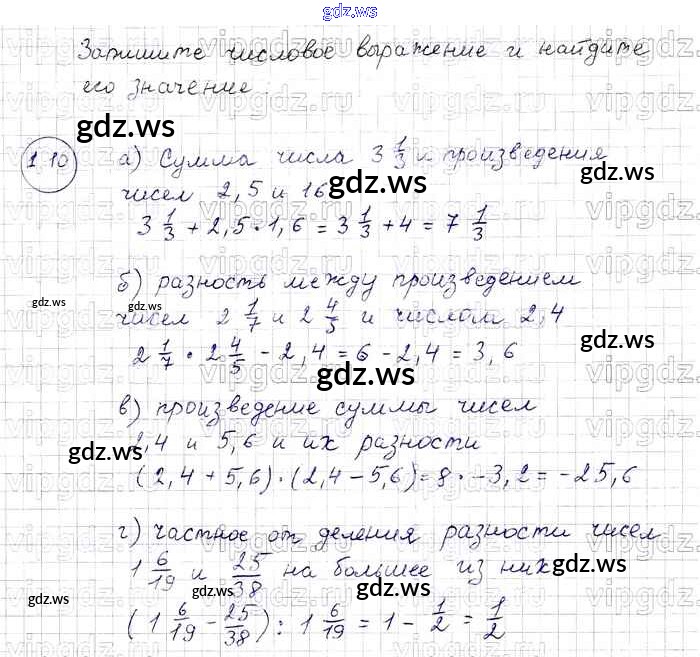 gdz.ws
Запишите числовое выражение и найдите
его значение.
1.10
а) Сумма числа 3 1/3 и произведения
чисел 2,5 и 16
3 1/3 + 2,5 · 1,6 = 3 1/3 + 4 = 7 1/3
б) разность между произведением
чисел 2 1/7 и 2 4/5 и числом 2,4
2 1/7 · 2 4/5 - 2,4 = 6 - 2,4 = 3,6
в) произведение суммы чисел
2,4 и 5,6 и их разности
(2,4 + 5,6) · (2,4 - 5,6) = 8 · -3,2 = -25,6
г) частное от деления разности чисел
1 6/19 и 25/38 на большее из них
(1 6/19 - 25/38) : 1 6/19 = 1 - 1/2 = 1/2
gdz.ws
gdz.ws
gdz.ws
gdz.ws
gdz.ws
gdz.ws
gdz.ws
gdz.ws
gdz.ws
gdz.ws
gdz.ws
gdz.ws
vipgdz.ru